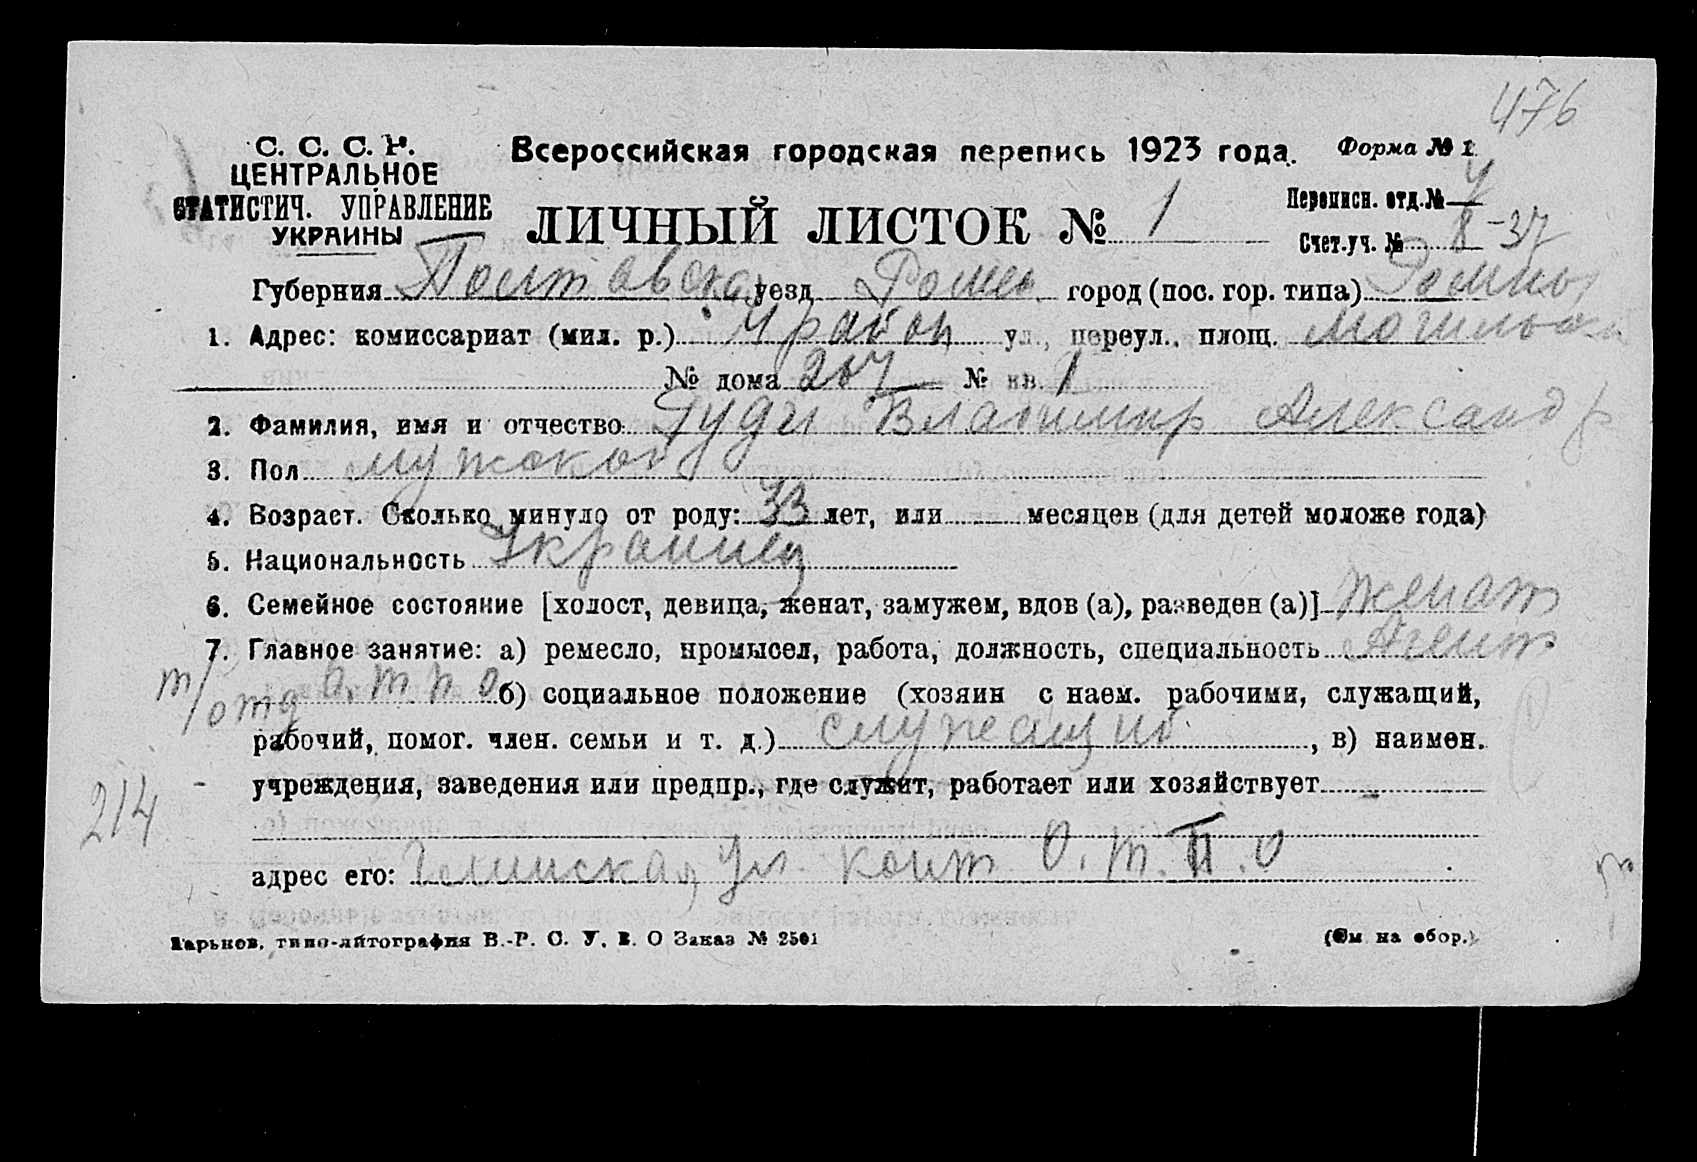 476
С. С. С. Р.
ЦЕНТРАЛЬНОЕ
СТАТИСТИЧ. УПРАВЛЕНИЕ
УКРАИНЫ
Всероссийская городская перепись 1923 года.
Форма № 1
ЛИЧНЫЙ ЛИСТОК № 1
Переписн. отд. № 4
Счет. уч. № 8-37
Губерния Полтавская уезд Ромен. город (пос. гор. типа) Ромны
1. Адрес: комиссариат (мил. р.) 4 район ул., переул., площ.
№ дома № кв. 1
2. Фамилия, имя и отчество: Владимир Александр
3. Пол мужской
4. Возраст. Сколько минуло от роду: 33 лет, или месяцев (для детей моложе года)
5. Национальность Украинец
6. Семейное состояние [холост, девица, женат, замужем, вдов (а), разведен (а)] женат
7. Главное занятие: а) ремесло, промысел, работа, должность, специальность Агент
т/отд о.т.п.о б) социальное положение (хозяин с наем. рабочими, служащий,
рабочий, помог. член. семьи и т. д.) служащий, в) наимен.
учреждения, заведения или предпр., где служит, работает или хозяйствует
214
адрес его: ул. конт. О.Т.П.О
Харьков, типо-литография В.-Р. С. У. В. О Заказ № 2501
(См на обор.)